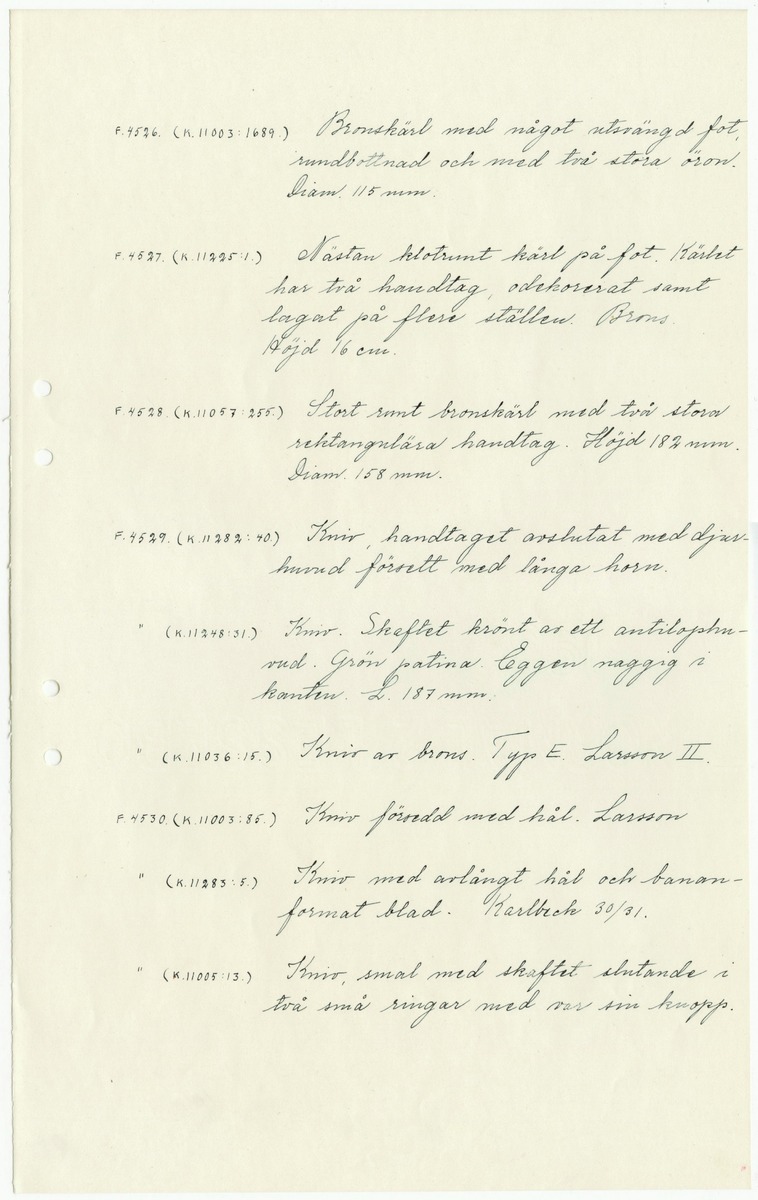 F.4526. (K.11003:1689.) Bronskärl med något utsvängd fot,
rundbottnad och med två stora öron.
Diam. 115 mm.
F.4527. (K.11225:1.) Nästan klotrunt kärl på fot. Kärlet
har två handtag, odekorerat samt
lagat på flere ställen. Brons.
Höjd 16 cm.
F.4528. (K.11057:255.) Stort runt bronskärl med två stora
rektangulära handtag. Höjd 182 mm.
Diam. 158 mm.
F.4529. (K.11282:40.) Kniv, handtaget avslutat med djur-
huvud försett med långa horn.
" (K.11248:31.) Kniv. Skaftet krönt av ett antilophu-
vud. Grön patina. Eggen naggig i
kanten. L. 187 mm.
" (K.11036:15.) Kniv av brons. Typ E. Larsson II.
F.4530. (K.11003:85.) Kniv försedd med hål. Larsson
" (K.11283:5.) Kniv med avlångt hål och banan-
format blad. Karlbeck 30/31.
" (K.11005:13.) Kniv, smal med skaftet slutande i
två små ringar med var sin knopp.